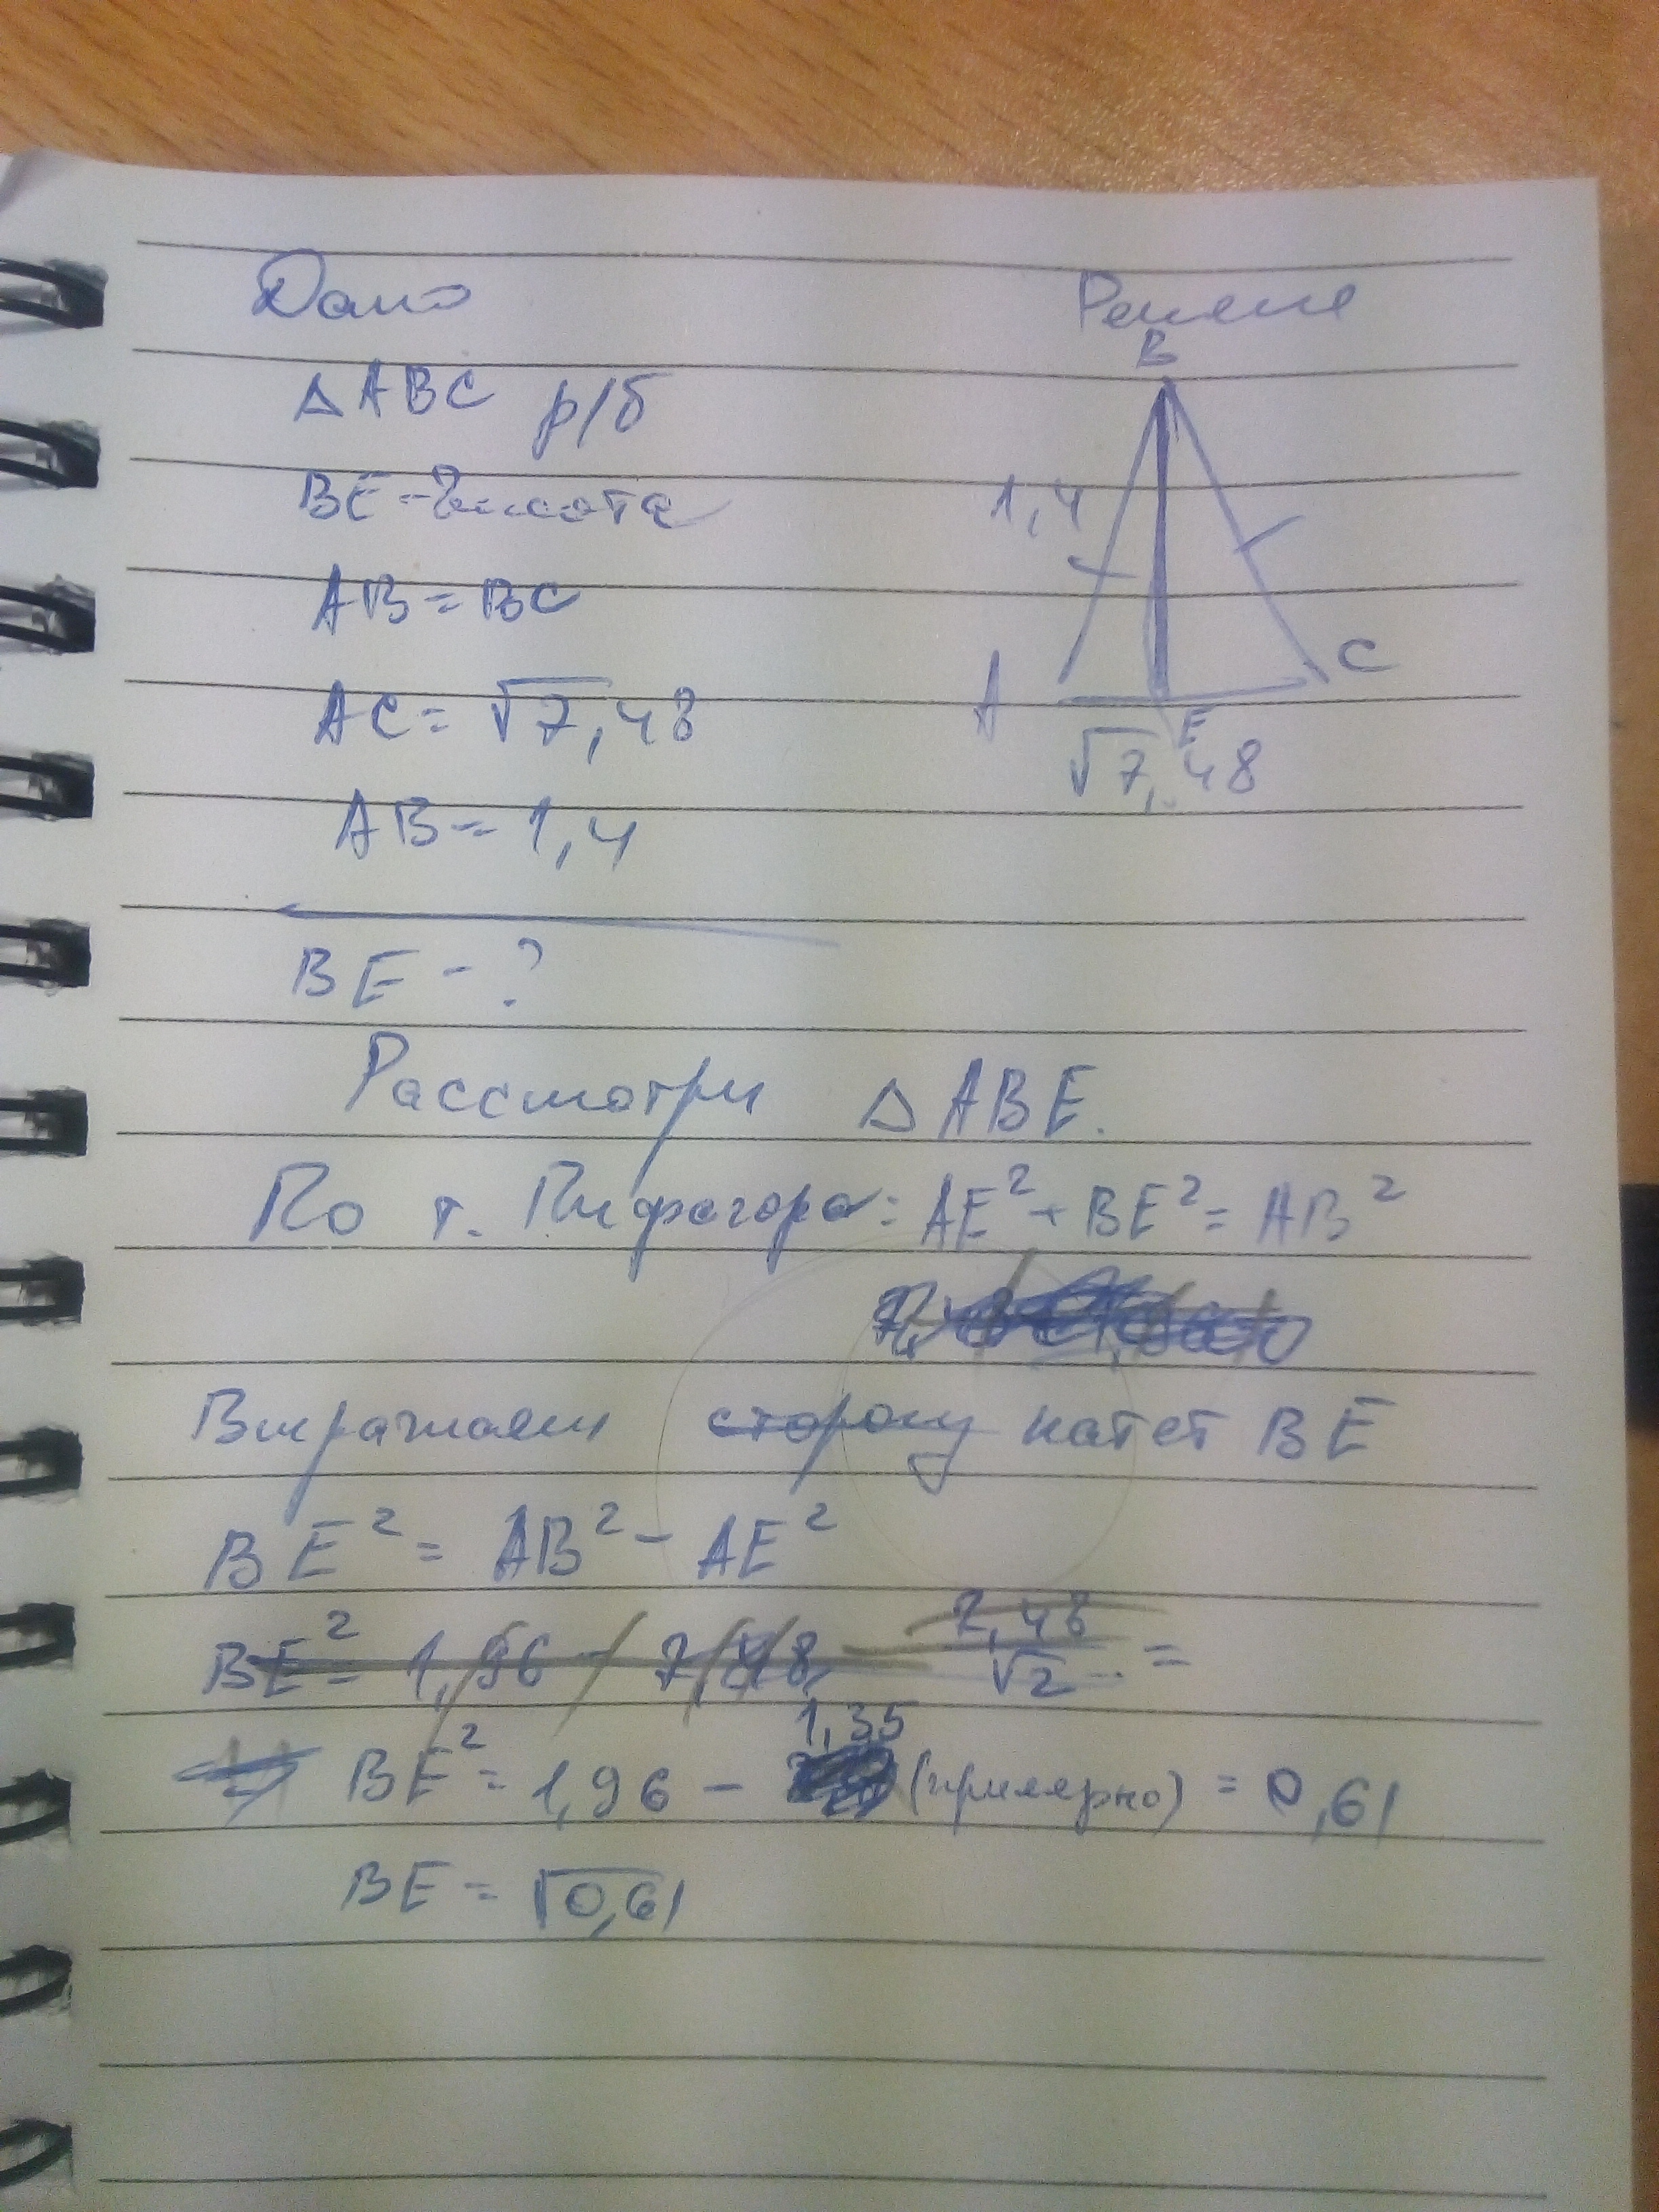 Дано
Решение
△ABC р/б
BE - высота
AB = BC
AC = √7,48
AB = 1,4
BE - ?
B
1,4
A
C
E
√7,48
Рассмотри △ABE.
По т. Пифагора: AE² + BE² = AB²
Выражаем сторону катет BE
BE² = AB² - AE²
BE² = 1,96 - 7,48 7,48/√2 =
BE² = 1,96 - 1,35 (примерно) = 0,61
BE = √0,61